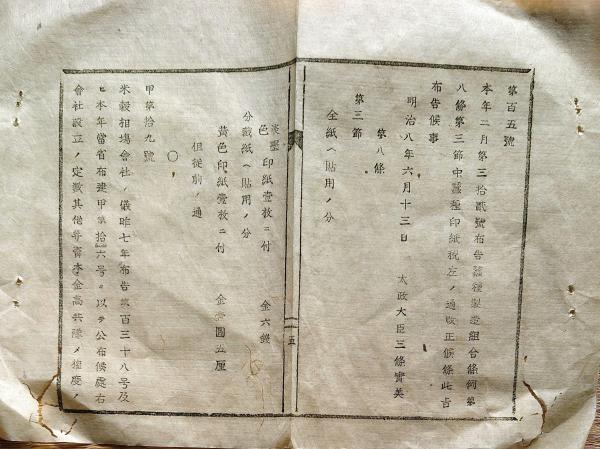 第百五號
本年二月第三拾貳號布告蠶種製造組合條例第
八條第三節中蠶種印紙税左ノ通改正候條此旨
布告候事
明治八年六月十三日　太政大臣三條實美
第八條
第三節
全紙ヘ貼用ノ分
色印紙壹枚ニ付　金六錢
分裁紙ヘ貼用ノ分
黄色印紙壹枚ニ付　金壹圓五厘
但從前ノ通
〇
甲第拾九號
米穀相塲會社ノ儀昨七年布告第百三十八号及
ヒ本年當省布達甲第拾六号ヲ以テ公布候處右
會社設立ノ定數其他身資本金高共隊メ
五